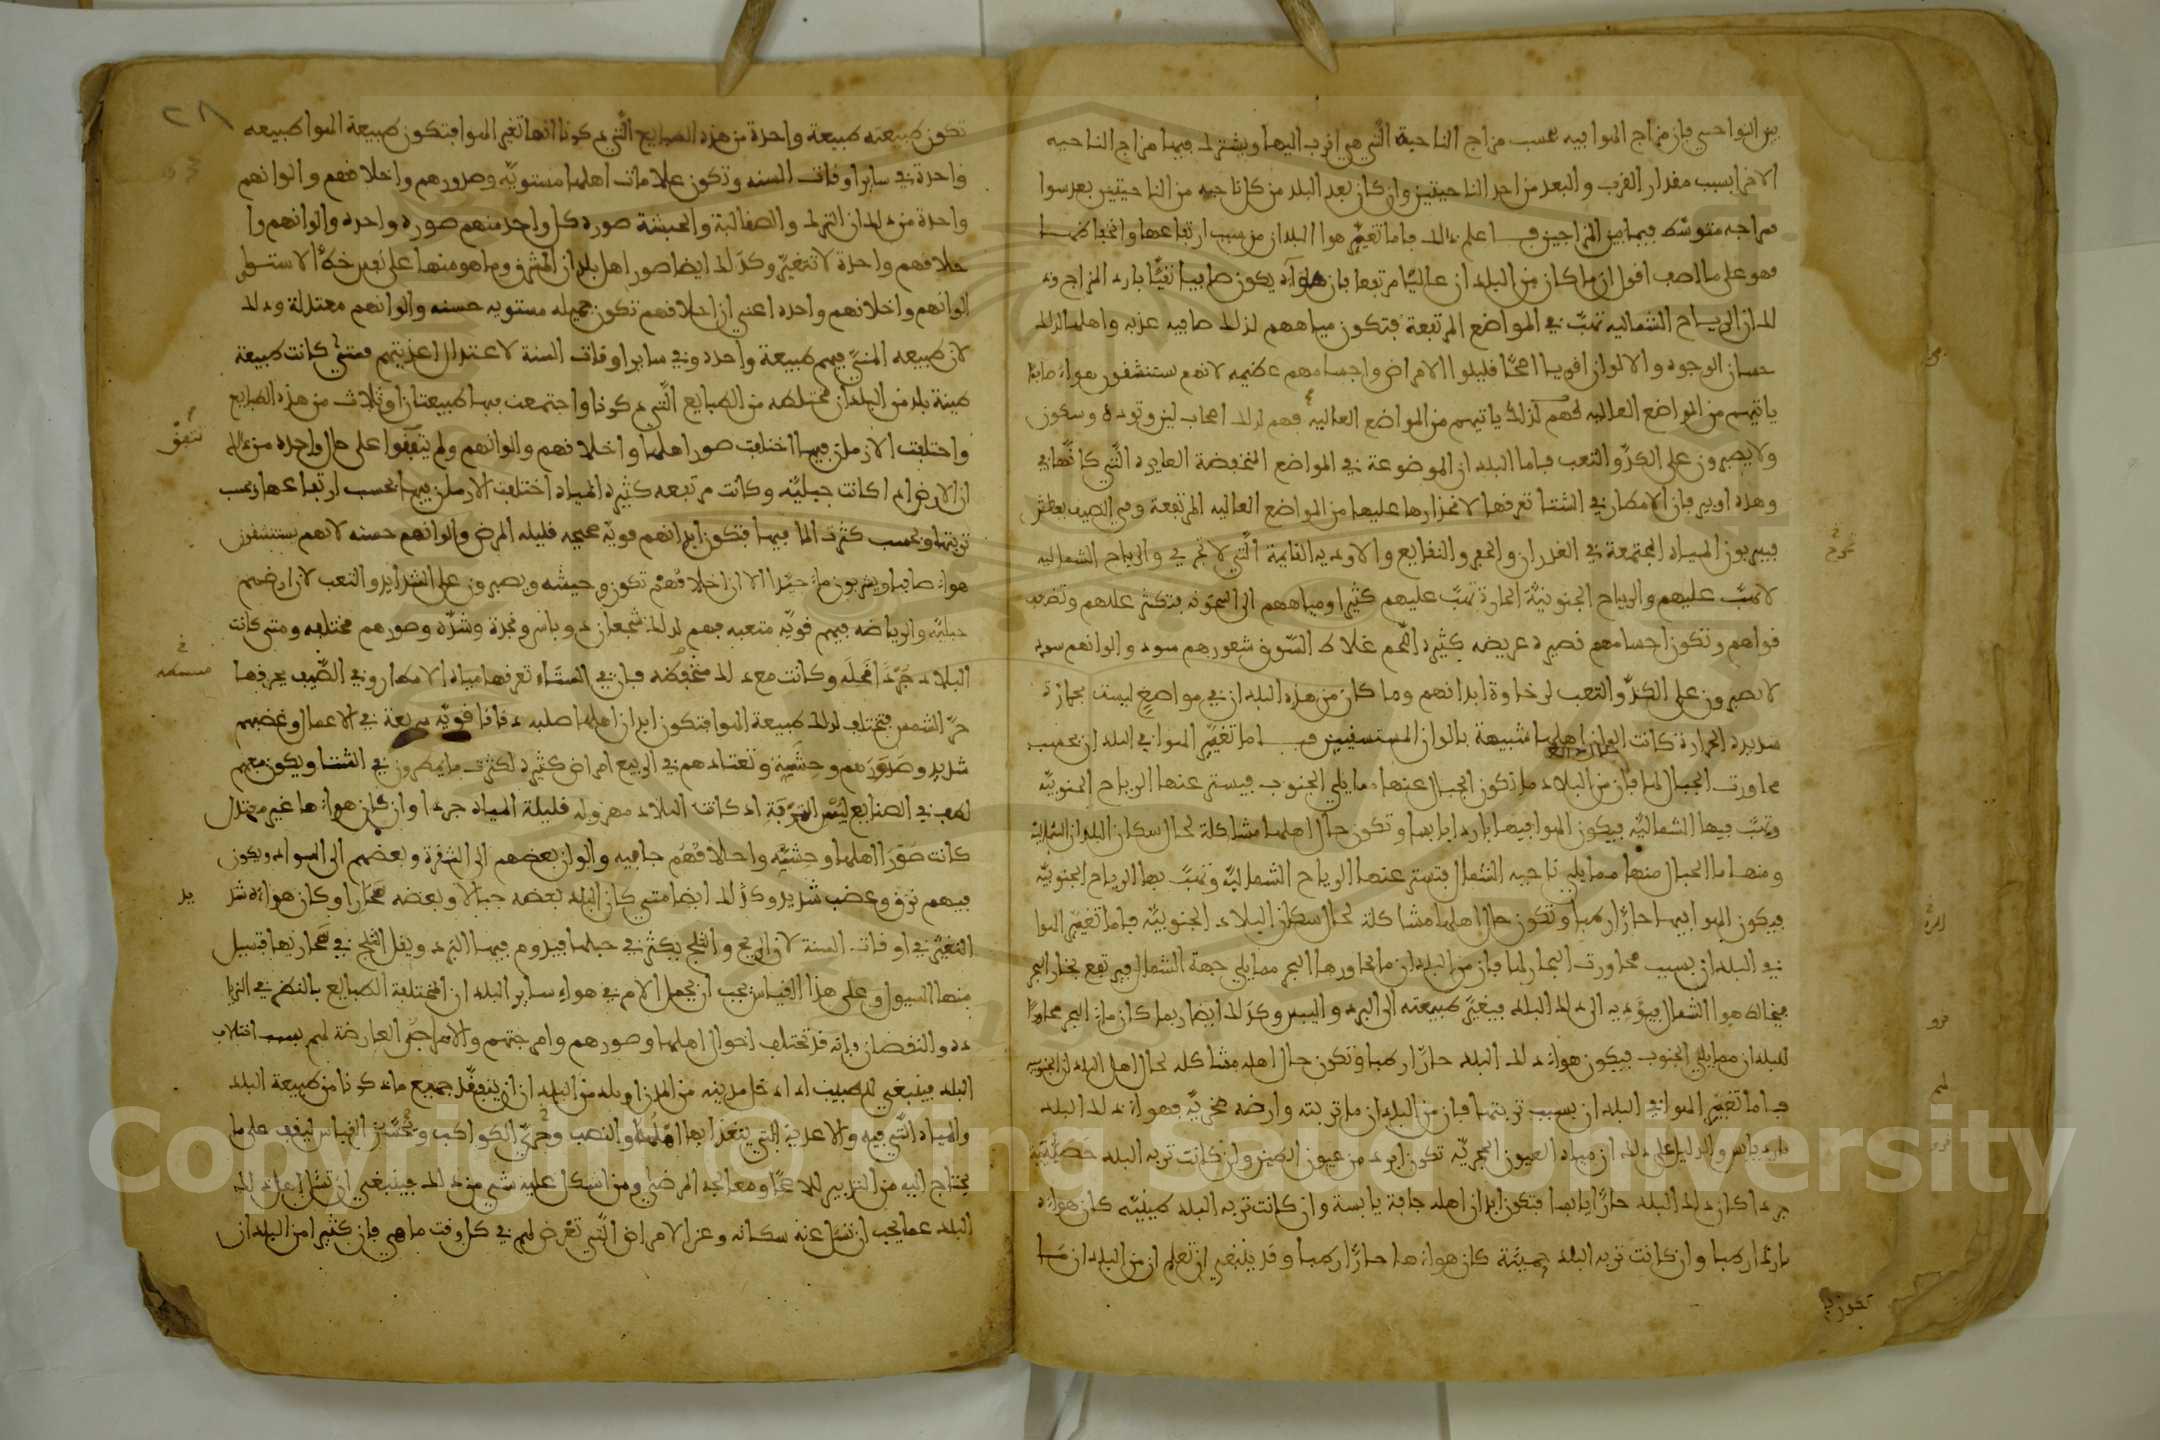 بين النواحي فان مزاج الهوا فيه بحسب مزاج الناحية الّتي هي اقرب اليها ويشترك فيها مزاج الناحيه
الاخرا بسبب مقدار القرب والبعد من احد الناحيتين وان كان بعد البلد من كل ناحيه من الناحيتين بعد سوا
فمزاجه متوسّط فيما بين المزاجين فاعلم ذالك فاما تغيّر هوا البلدان من سبب ارتفاعها وانخفاضها
فهو على ما اصف اقول ان ما كان من البلدان عاليًا مرتفعا فان هواه يكون صافيا نقيًّا بارد المزاج وذ
الك ان الرياح الشماليه تهبّ في المواضع المرتفعة فتكون مياههم لذلك صافيه عذبه واهلها لذلك
حسان الوجوه والالوان اقويا اصحّا قليلوا الامراض واجسامهم عظيمه لانهم يستنشقون هواء صافيا
ياتيهم من المواضع العاليه فهم لذلك اصحاب لين وتوده وسكون
ولا يصبرون على الكدّ والتعب فاما البلدان الموضوعة في المواضع المنخفضة الغايره الّتي كانّها في
وهده او بير فان الامطار في الشتا تغرقها لانحدارها عليها من المواضع العاليه المرتفعة وفي الصيف
فيشربون المياه المجتمعة في الغدران والحفر والنقايع والاوديه القايمة الّتي لا تجري والرياح الشماليه
لا تهبّ عليهم والرياح الجنوبيّة الحارة تهبّ عليهم كثيرا ومياههم الى السخونه فتكثر عللهم وتضعف
قواهم وتكون اجسامهم قصيره عريضه كثيره اللّحم غلاظ السّوق شعورهم سود والوانهم سود
لا يصبرون على الكدّ والتعب لرخاوة ابدانهم وما كان من هذه البلدان في مواضع ليست بحارة
شديدة الحرارة كانت الوان اهلها شبيهة بالوان المستسقيين فاما تغيّر الهوا في البلدان بحسب
مجاورت الجبال لها فان من البلاد ما تكون الجبال عنها مما يلي الجنوب فيستتر عنها الرياح الجنوبيّة
وتهبّ فيها الشماليّه فيكون الهوا فيها باردا يابسا وتكون حال اهلها مشاكلة لحال سكان البلدان الشماليّه
ومنها ما الجبال منها مما يلي ناحيه الشمال فتستتر عنها الرياح الشماليّه وتهبّ بها الرياح الجنوبيّه
فيكون الهوا فيها حارًّا رطبا وتكون حال اهلها مشاكلة لحال سكان البلاد الجنوبيّة فاما تغيّر الهوا
في البلدان بسبب مجاورت البحار لها فان من البلدان ما يجاورها البحر مما يلي جهة الشمال فيرتفع بخار البحر
فيخالط هوا الشمال فيؤديه الى ذالك البلد فيغيّر طبيعته الى البرد واليبس وكذلك ايضا ربما كان ماء البحر مجاورا
للبلدان مما يلي الجنوب فيكون هوا ذالك البلد حارّا رطبا وتكون حال اهله مشاكله لحال اهل البلدان الجنوبيه
فاما تغيّر الهوا في البلدان بسبب تربتها فان من البلدان ما تربته وارضه صخريّه فهوا ذالك البلد
بارد يابس والدليل على ذالك ان مياه العيون الحجريّه تكون ابرد من عيون الطين وان كانت تربه البلد
جردا كان ذالك البلد حارًّا يابسا فتكون ابدان اهله جافة يابسة وان كانت تربه البلد طينيّه كان هواه
باردا رطبا وان كانت تربه البلد حميّة كان هواءها حارًّا رطبا وقد ينبغي ان تعلم ان من البلدان ما
٢٨
تكون طبيعته طبيعة واحدة من هذه الطبايع الّتي ذكرنا انها تغير الهوا فتكون طبيعة الهوا طبيعه
واحدة في ساير اوقات السنه وتكون علامات اهلها مستويّه وصورهم واخلاقهم والوانهم
واحدة من ذلك ان الترك والصقالبة والحبشة صورة كل واحد منهم صوره واحده والوانهم وا
خلاقهم واحدة لا تتغيّر وكذلك ايضا صور اهل بلدان المشرق وما هو منها على نفس خطّ الاستوا
الوانهم واخلاقهم واحده اعني ان اخلاقهم تكون جميله مستويه حسنه والوانهم معتدلة وذلك
لان طبيعه المنيّ فيهم طبيعة واحده وفي ساير اوقات السنة لاعتدال اغذيتهم فمتى كانت طبيعة
طينة بلد من البلدان مختلطه من الطبايع الّتي ذكرنا واجتمعت فيها طبيعتان او ثلاث من هذه الطبايع
واختلفت الازمان فيها اختلفت صور اهلها واخلاقهم والوانهم ولم يتفقوا على حال واحده من ذالك
تتفق
ان الارض اذا كانت جبليّه وكانت مرتفعه كثيره المياه اختلفت الازمان فيها بحسب ارتفاعها وبحسب
تربتها وبحسب كثرت الما فيها فتكون ابدانهم قويّه صحيحه قليله المرض والوانهم حسنه لانهم يستنشقون
هواء صافيا ويشربون ماء جيّدا الا ان اخلاقهم تكون وحيشه ويصبرون على الشدايد والتعب لان ارضهم
جبليّه والرياضه فيهم قويّه متعبه فهم لذلك شجعان ذو باس ونجدة وشدّه وصورهم مختلفه ومتى كانت
البلاد جردا قحله وكانت مع ذلك منخفظه فان في الشتاء تغرقها مياه الامطار وفي الصّيف يحرقها
حرّ الشمس فتختلف لذلك طبيعة الهوا فتكون ابدان اهلها صلبه دقاقا قويّه سريعة في الاعمال وغضبهم
شديد وصورهم وحشيه وتعتادهم في الربيع امراض كثيره لكثرت ما يمطرون في الشتا ويكون معهم
لطف في الصنايع اذ كانت البلاد مهزوله قليلة المياه جردا وان كان هواءها غير معتدل
كانت صور اهلها وحشيّه واخلاقهم جافيه والوان بعضهم الى الشقرة وبعضهم الى السواد ويكون
فيهم نزق وغضب شديد وكذلك ايضا متى كان البلد بعضه جبالا وبعضه صحارا وكان هواءه شد
يد
التغيّر في اوقات السنة لان الريح والثلج يكثر في جبلها فيدوم فيها البرد ويقل الثلج في صحاريها فتسيل
منها السيول وعلى هذا القياس يجب ان يجعل الامر في هواء ساير البلدان المختلفة الطبايع بالنظر في الزيا
ده والنقصان فانه قد تختلف احوال اهلها وصورهم وامزجتهم والامراض العارضة لهم بسبب اختلاف
البلد فينبغي للطبيب اذا دخل مدينه من المدن او بلد من البلدان ان يتفقّد جميع ما ذكرنا من طبيعة البلد
والمياه الّتي فيه والاغذية التي يتغذا بها اهلها والنصب الكواكب القياس ليقف على ما
يحتاج اليه من التدبير للاصحّا ومعالجه المرضى ومن اشكل عليه شي من ذلك فينبغي ان يسل اهل ذالك
البلد عما يجب ان تسل عنه سكانه وعن الامراض الّتي تعرض لهم في كل وقت ما هي فان كثيرا من البلدان
Copyright © King Saud University